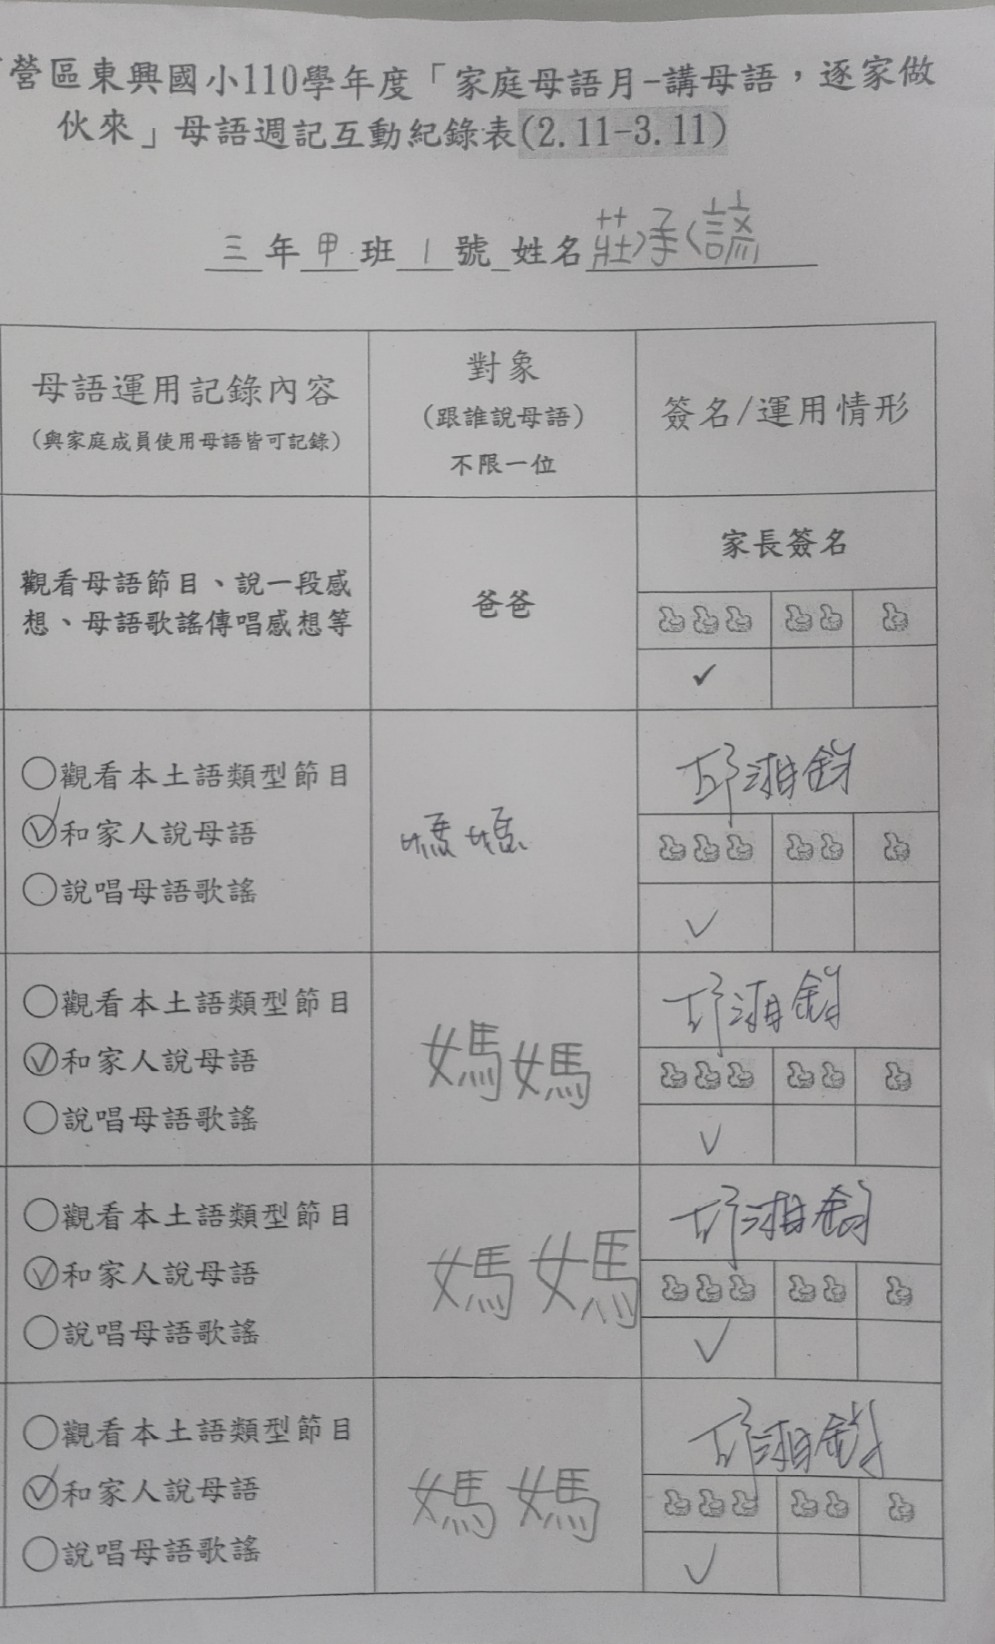 營區東興國小110學年度「家庭母語月-講母語，逐家做
伙來」母語週記互動紀錄表(2.11-3.11)
三年甲班1號 姓名莊承諺
母語運用記錄內容
（與家庭成員使用母語皆可記錄）
對象
（跟誰說母語）
不限一位
簽名/運用情形
觀看母語節目、說一段感
想、母語歌謠傳唱感想等
爸爸
家長簽名
✓
○觀看本土語類型節目
✓和家人說母語
○說唱母語歌謠
媽媽
邱湘
✓
○觀看本土語類型節目
✓和家人說母語
○說唱母語歌謠
媽媽
邱湘
✓
○觀看本土語類型節目
✓和家人說母語
○說唱母語歌謠
媽媽
邱湘
✓
○觀看本土語類型節目
✓和家人說母語
○說唱母語歌謠
媽媽
邱湘
✓